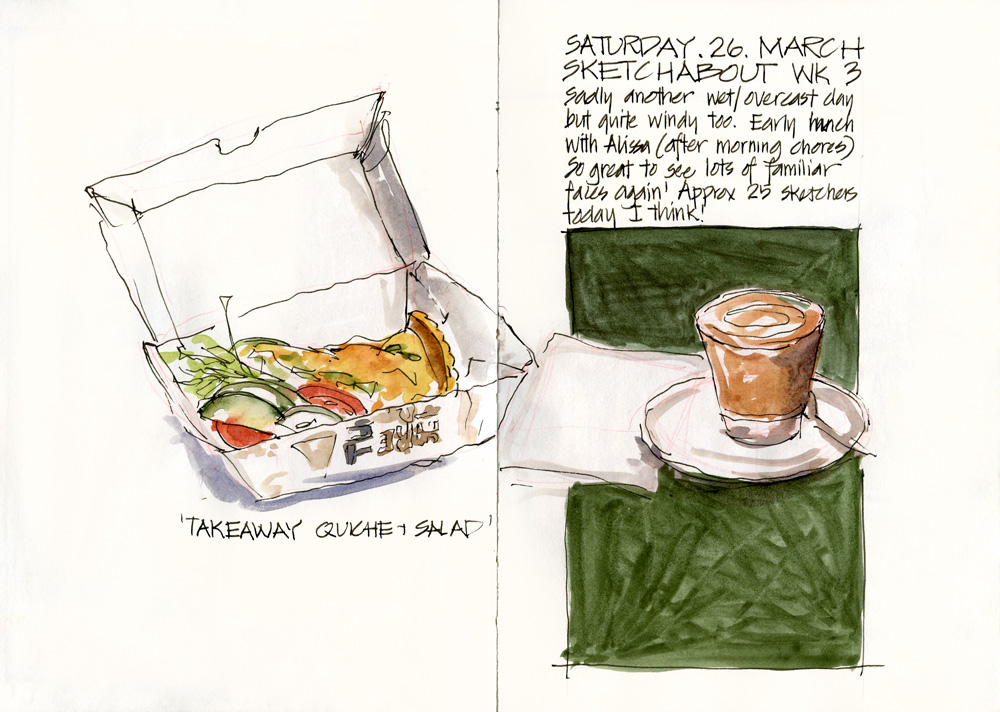 SATURDAY. 26. MARCH
SKETCHABOUT WK 3
Sadly another wet/overcast day
but quite windy too. Early lunch
with Alissa (after morning chores)
So great to see lots of familiar
faces again! Approx 25 sketchers
today I think!
'TAKEAWAY QUICHE + SALAD'